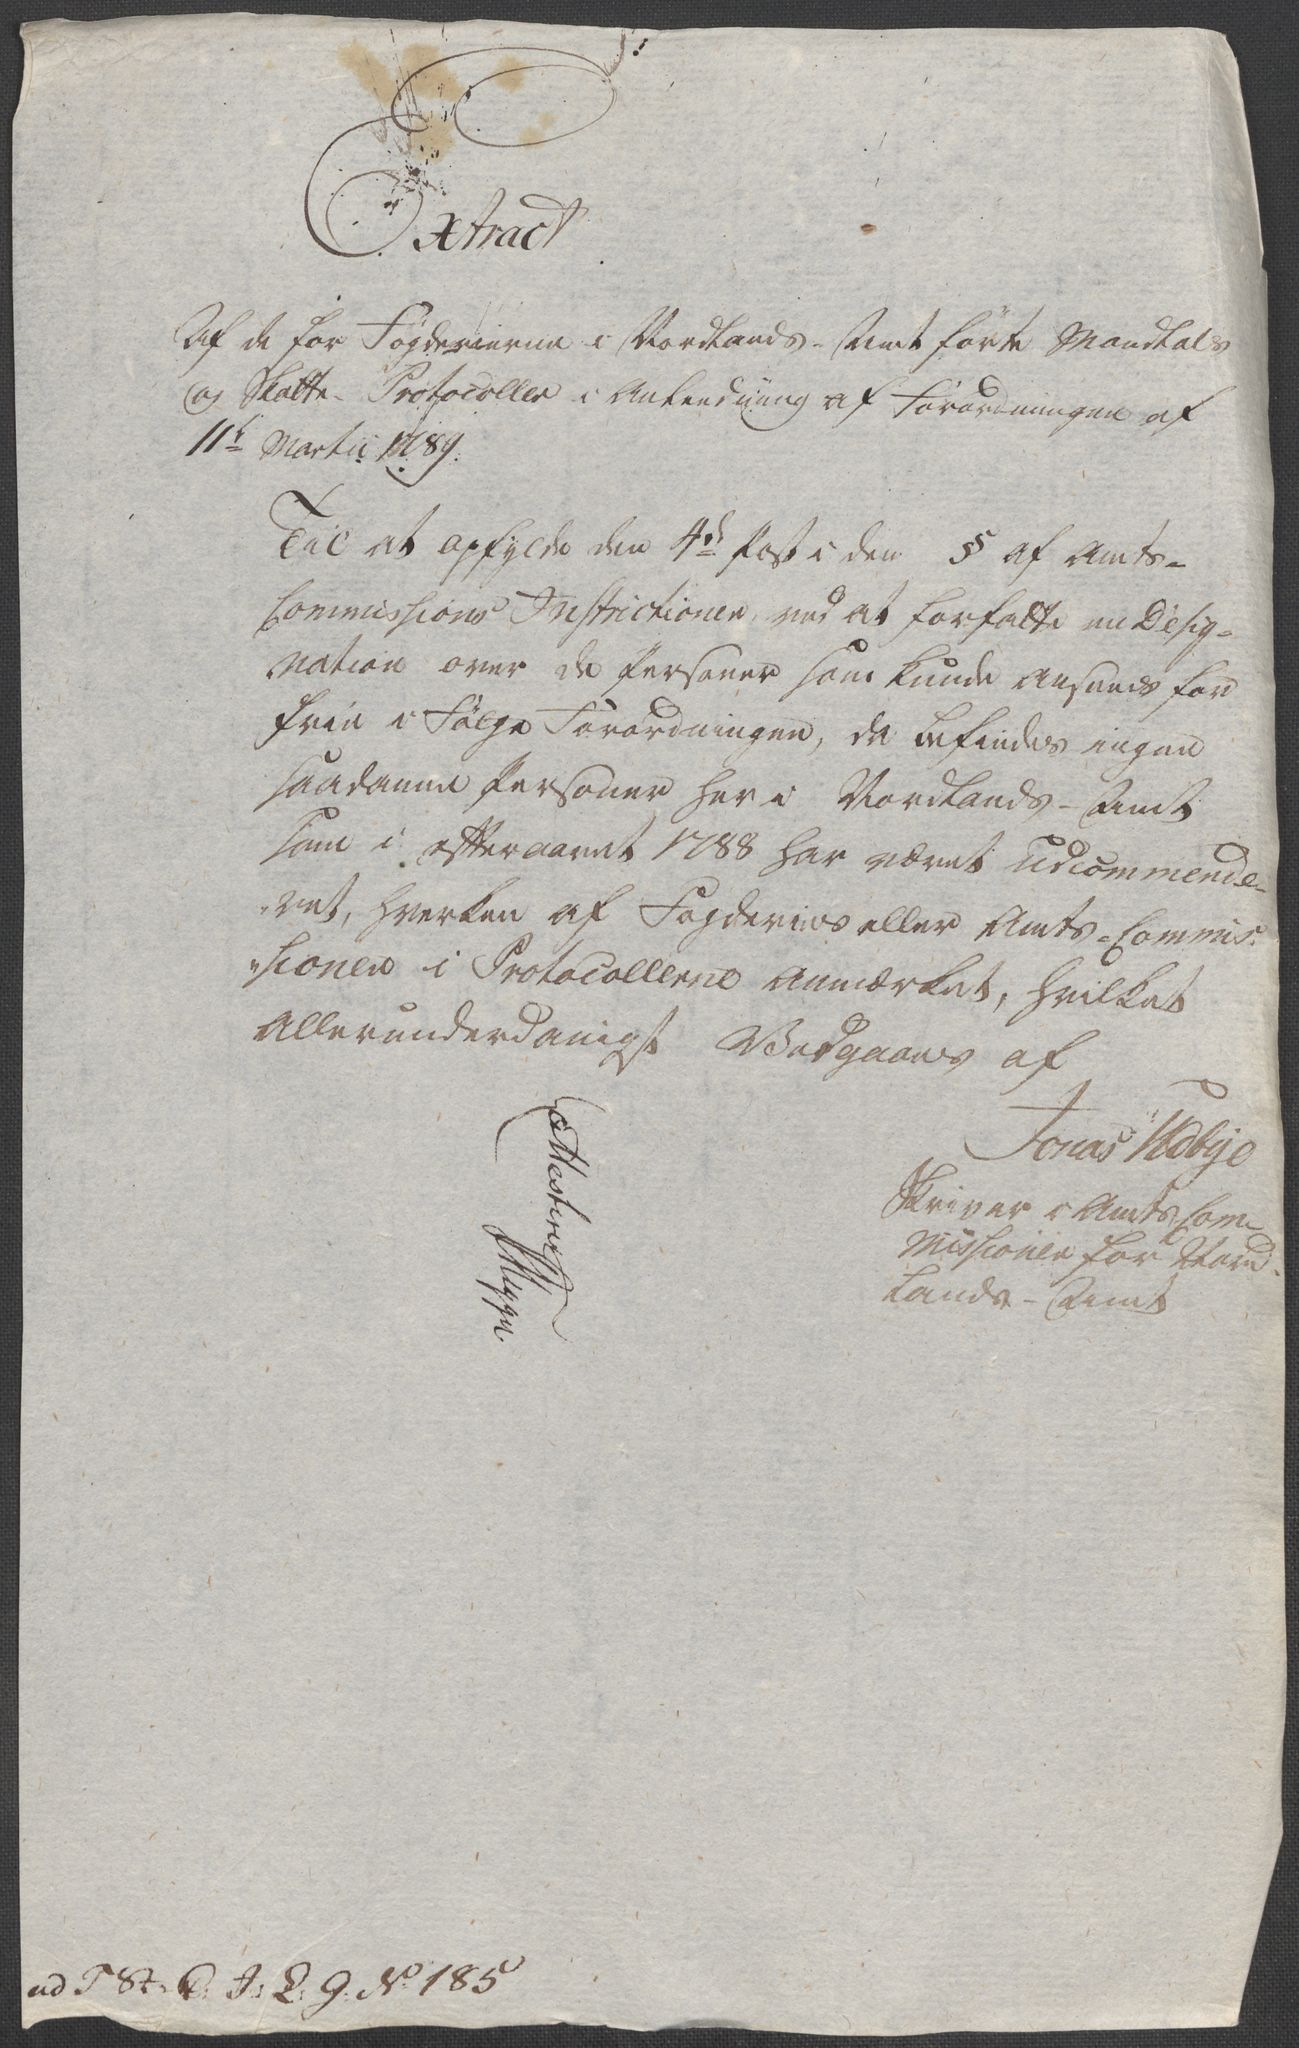 Extract
Af de for Fogderierne i Nordlands-Amt førte Mandtals
og Skatte-Protocoller i Anleedning af Forordningen af
11te Martii 1789.
Til at opfylde den 4de Post i den § af Amts-
Commissions Instrictionen, ved at forfatte en Desig-
nation over de Personer som kunde ansees for
frie i Følge Forordningen, da befindes ingen
saadanne Personer her i Nordlands-Amt
som i efteraaret 1788 har været udcommende-
ret, hverken af Fogderies eller Amts-Commis-
sionen i Protocollerne anmærket, hvilket
Allerunderdanigst Vedgaaes af
Jonas Kobye
Skriver i Amts Com-
missionen for Nord-
lands-Amt
Attesterer
ad T St. C. J: L. 9. No 185